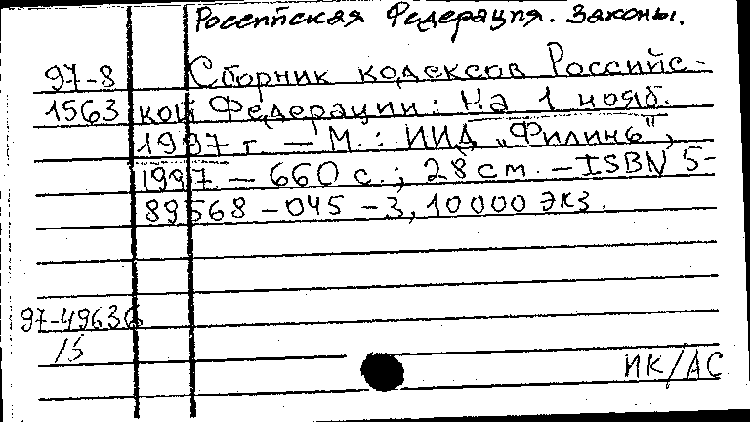 Российская Федерация. Законы.
97-8 Сборник кодексов Российс-
1563 кой Федерации: На 1 нояб.
1997 г. — М.: ИИД „Филинъ",
1997 — 660 с.; 28 см. — ISBN 5-
89568-045-3, 10000 экз.
97-49636
15
ИК/АС